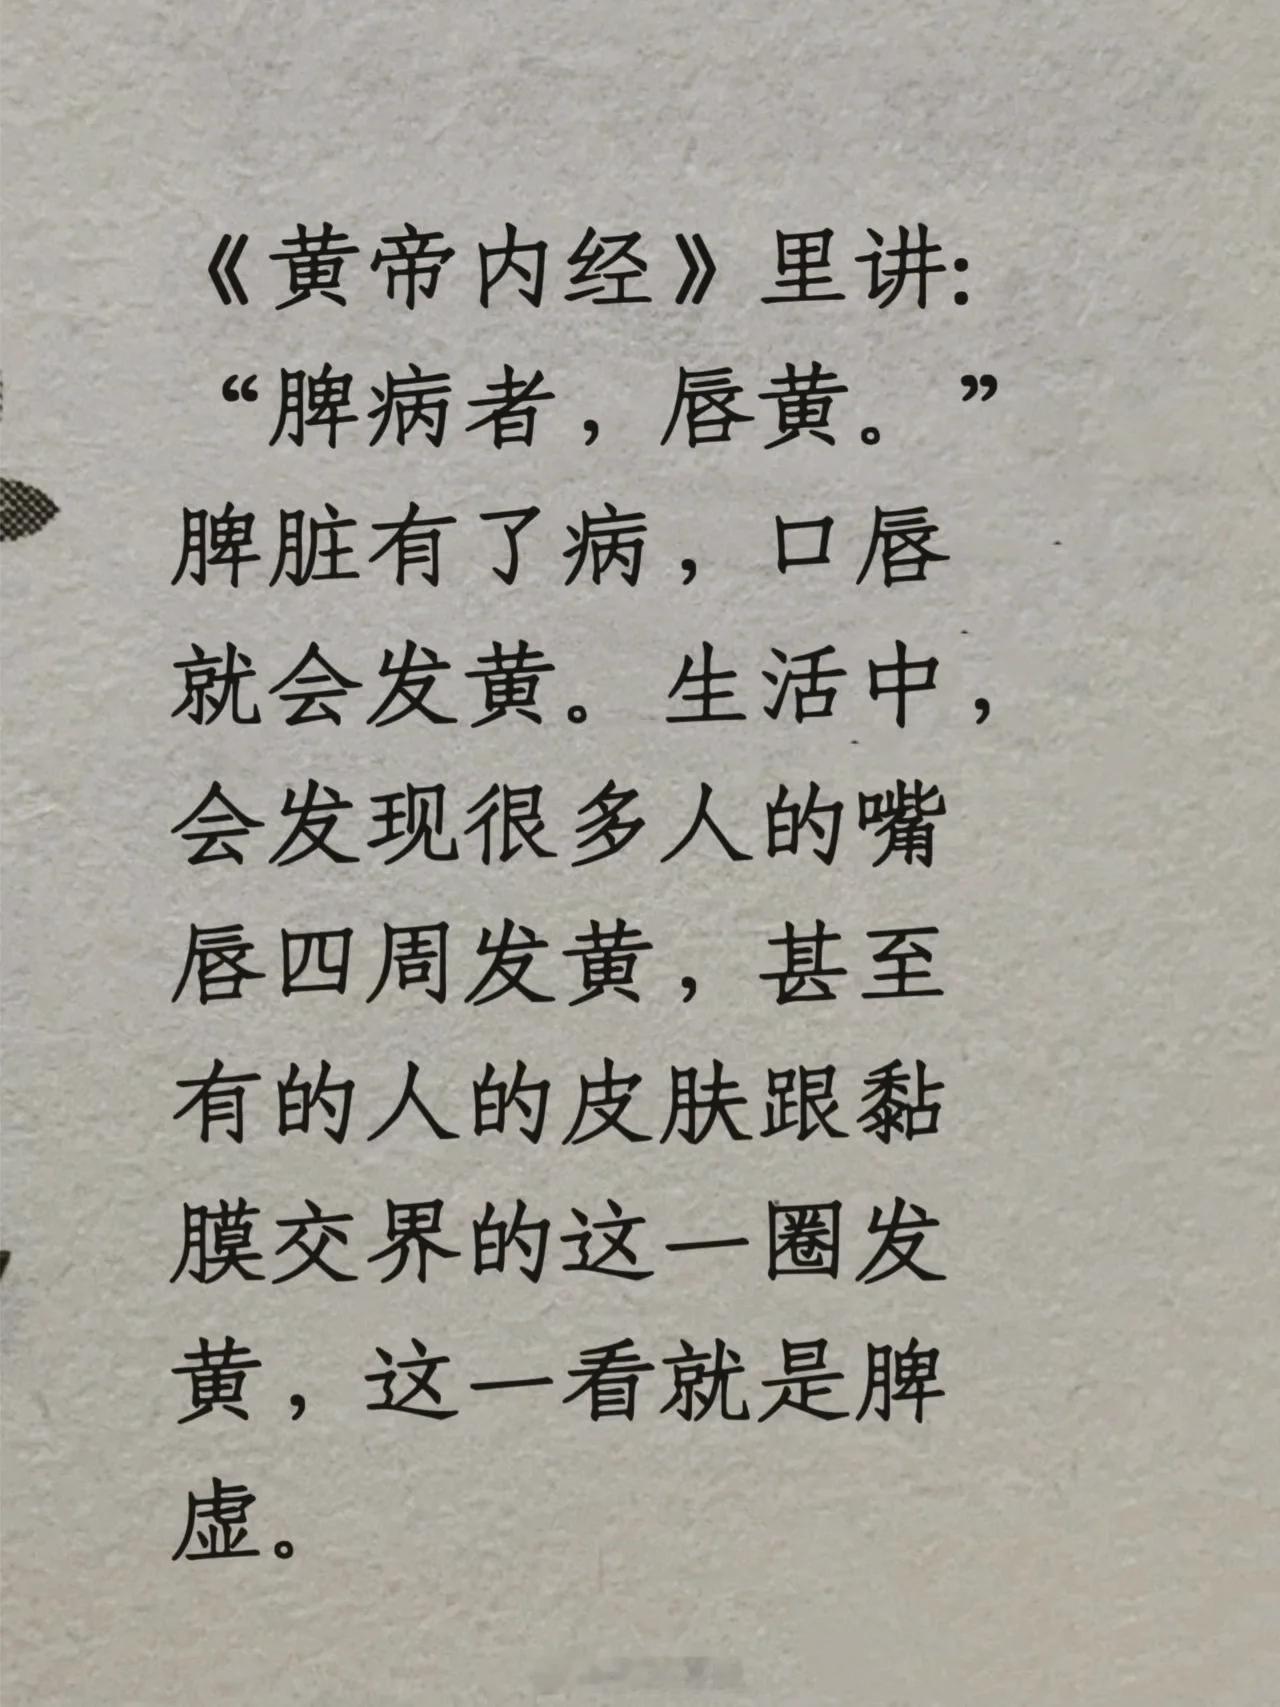 《黄帝内经》里讲:
“脾病者，唇黄。”
脾脏有了病，口唇
就会发黄。生活中，
会发现很多人的嘴
唇四周发黄，甚至
有的人的皮肤跟黏
膜交界的这一圈发
黄，这一看就是脾
虚。